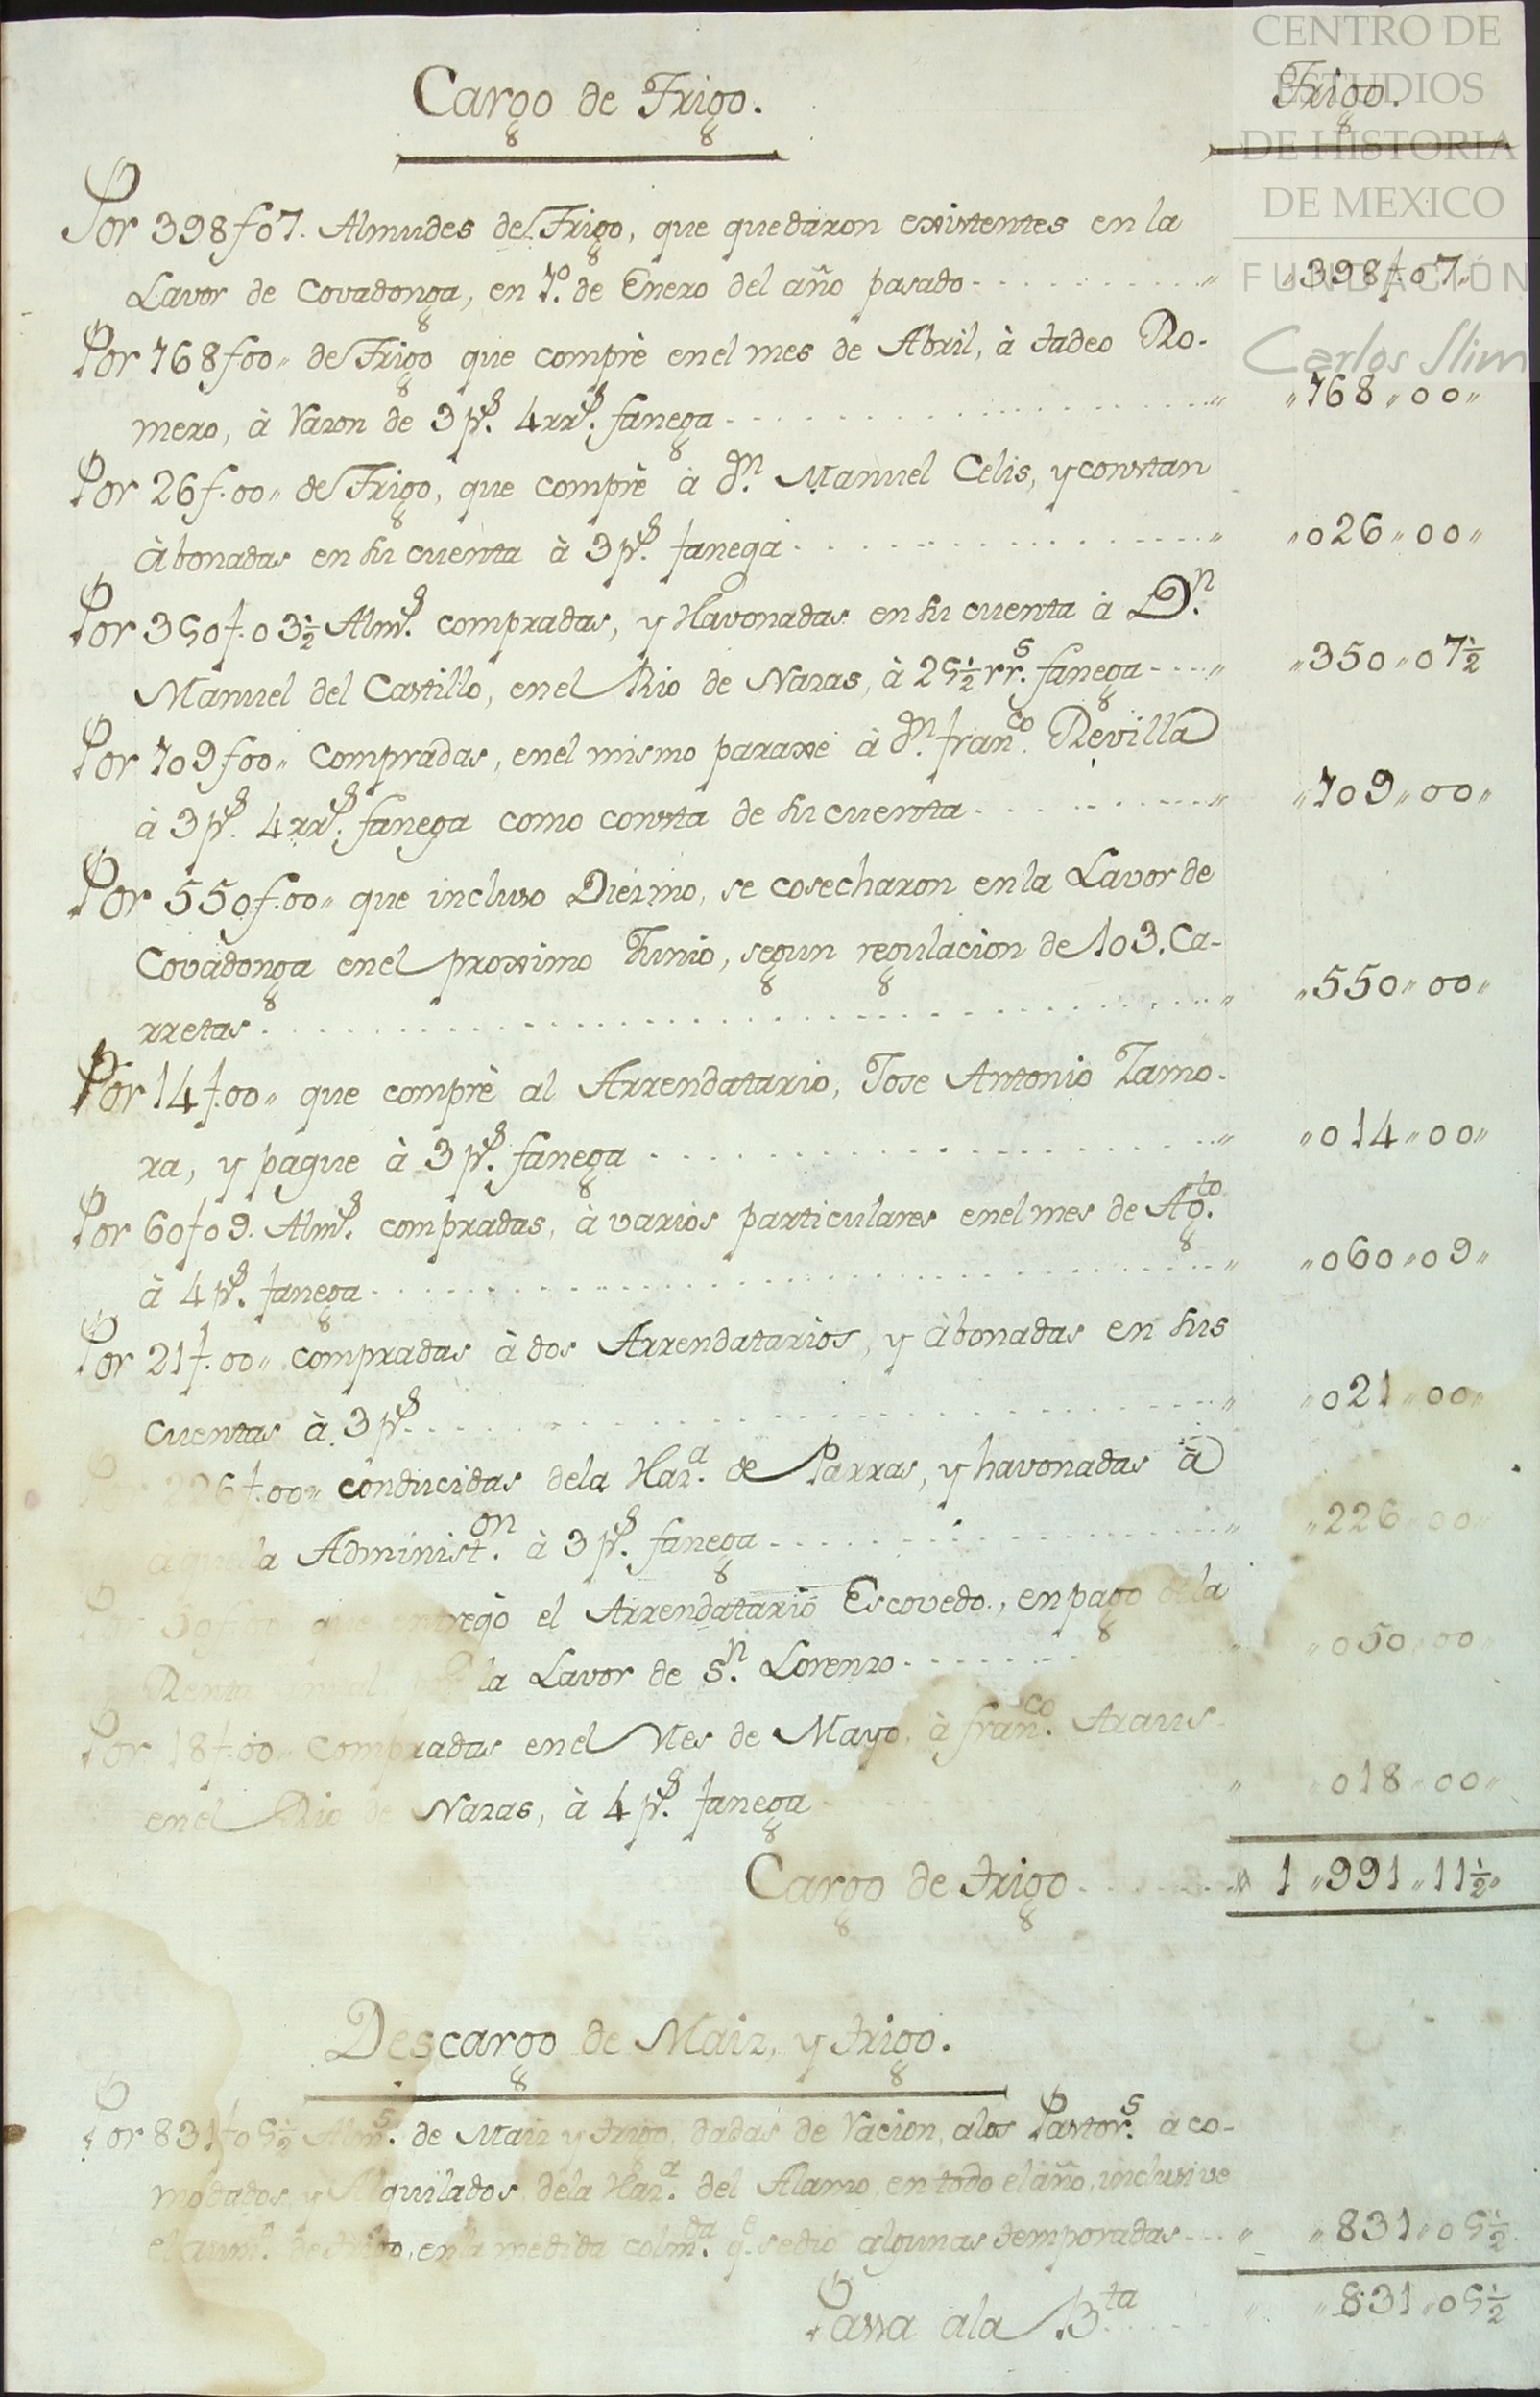 CENTRO DE
ESTUDIOS
DE HISTORIA
DE MEXICO
FUNDACIÓN
Carlos Slim
Cargo de Trigo. Trigo.
Por 398f07. Almudes de Trigo, que quedaron existentes en la
Lavor de Covadonga, en 1º. de Enero del año pasado - - - - - - - - - - - " "398f.07"
Por 168f00" de Trigo que comprè en el mes de Abril, à tadeo Ro-
mero, à razon de 3 pˢ. 4 rrˢ. fanega - - - - - - - - - - - " "168"00"
Por 26f.00" de Trigo, que comprè à dⁿ. Manuel Celis, y constan
àbonadas en su cuenta à 3 pˢ. fanega - - - - - - - - - - - " "026"00"
Por 350f.03½ Almˢ. compradas, y Havonadas en su cuenta à Dⁿ.
Manuel del Castillo, en el Rio de Nazas, à 25½ rrˢ. fanega - - - - " "350"07½
Por 109f00" compradas, en el mismo paraxe à dⁿ. franᶜᵒ. Revilla
à 3 pˢ. 4 rrˢ. fanega como consta de su cuenta - - - - - - - - " "109"00"
Por 550f.00" que incluso Diezmo, se cosecharon en la Lavor de
Covadonga en el proximo Junio, segun regulacion de 103. Ca-
rretas - - - - - - - - - - - - - - - - - - " "550"00"
Por 14f.00" que comprè al Arrendatario, Jose Antonio Zamo-
ra, y pague à 3 pˢ. fanega - - - - - - - - - - - - - - " "014"00"
Por 60f09. Almˢ. compradas, à varios particulares en el mes de Agᵗᵒ.
à 4 pˢ. fanega - - - - - - - - - - - - - - - - - " "060"09"
Por 21f.00" compradas à dos Arrendatarios, y àbonadas en sus
cuentas à 3 pˢ. - - - - - - - - - - - - - - - - " "021"00"
Por 226f.00" conducidas de la Hazᵃ. de Parras, y havonadas à
aquella Administᵒⁿ. à 3 pˢ. fanega - - - - - - - - - - - - " "226"00"
Por 50f00 que entregò el Arrendatario Escovedo, en pago de la
Renta anual de la Lavor de Sⁿ. Lorenzo - - - - - - - - " "050"00"
Por 18f.00" Compradas en el Mes de Mayo, à franᶜᵒ. Araus
en el Rio de Nazas, à 4 pˢ. fanega - - - " "018"00"
Cargo de trigo - - - - - - - " 1"991"11½"
Descargo de Maiz, y trigo.
Por 831f05½ Almˢ. de Maiz y trigo, dadas de racion, a los Pastorˢ. aco-
modados, y Alquilados, de la Hazᵃ. del Alamo, en todo el año, inclusive
el aumᵒ. de trigo, en la medida colmᵈᵃ. qᵉ. se dio algunas temporadas - - - " "831"05½
Passa a la Bᵗᵃ. - - - - - " "831"05½